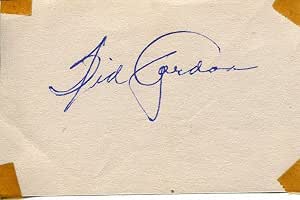 Sid Gordon